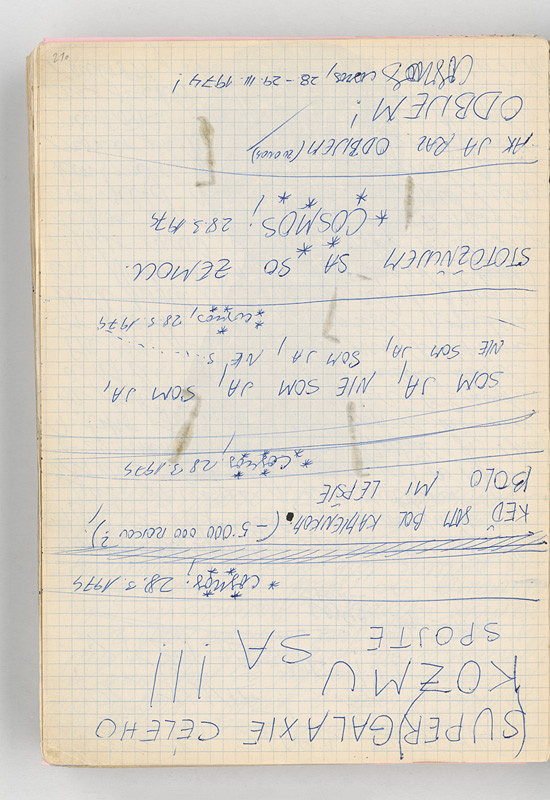 (SUPER)GALAXIE CELÉHO
KOZMU
SPOJTE SA !!!
* COSMOS * 28.3.1974
KEĎ SOM BOL KAMIENKOM. (– 5 000 000 ROKOV ?)
BOLO MI LEPŠIE
* COSMOS * 28.3.1974
SOM JA, NIE SOM JA, SOM JA,
NIE SOM JA, SOM JA, NIE S
* COSMOS, 28.3.1974
STOTOŽŇUJEM SA SO ZEMOU.
* COSMOS * 28.3.1974
AK JA RAZ ODBIJEM
ODBIJEM!
COSMOS 28-29.III.1974!
210